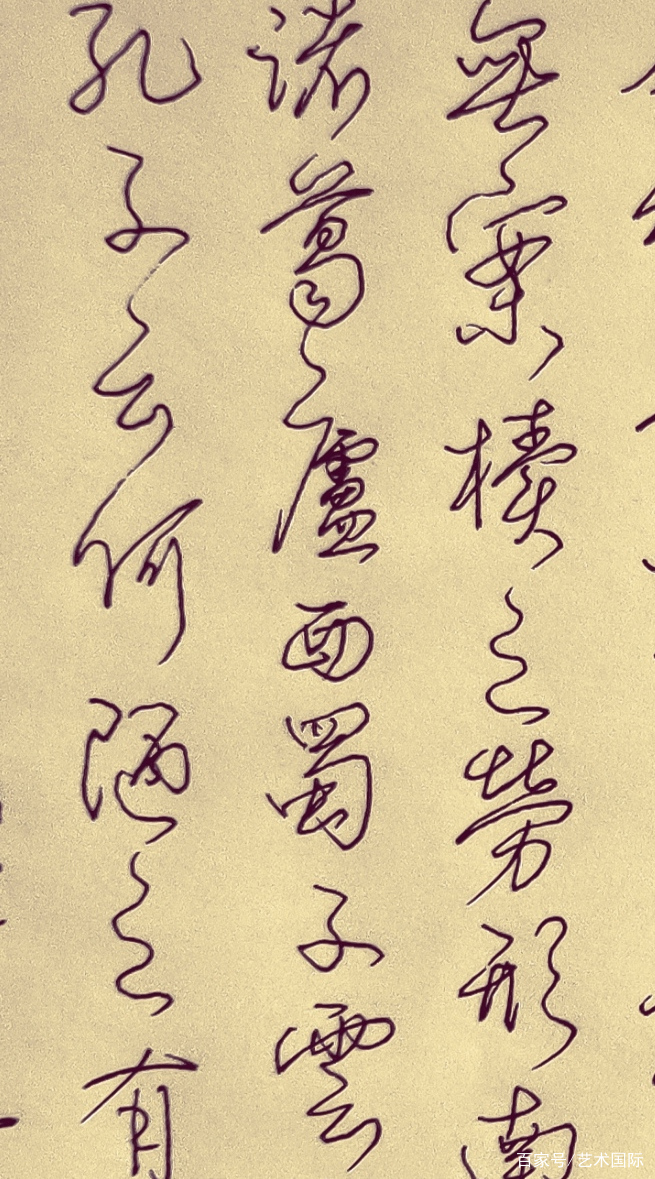 無案櫝之勞形南
諸葛廬西蜀子雲
孔子云何陋之有
百家号/艺术国际